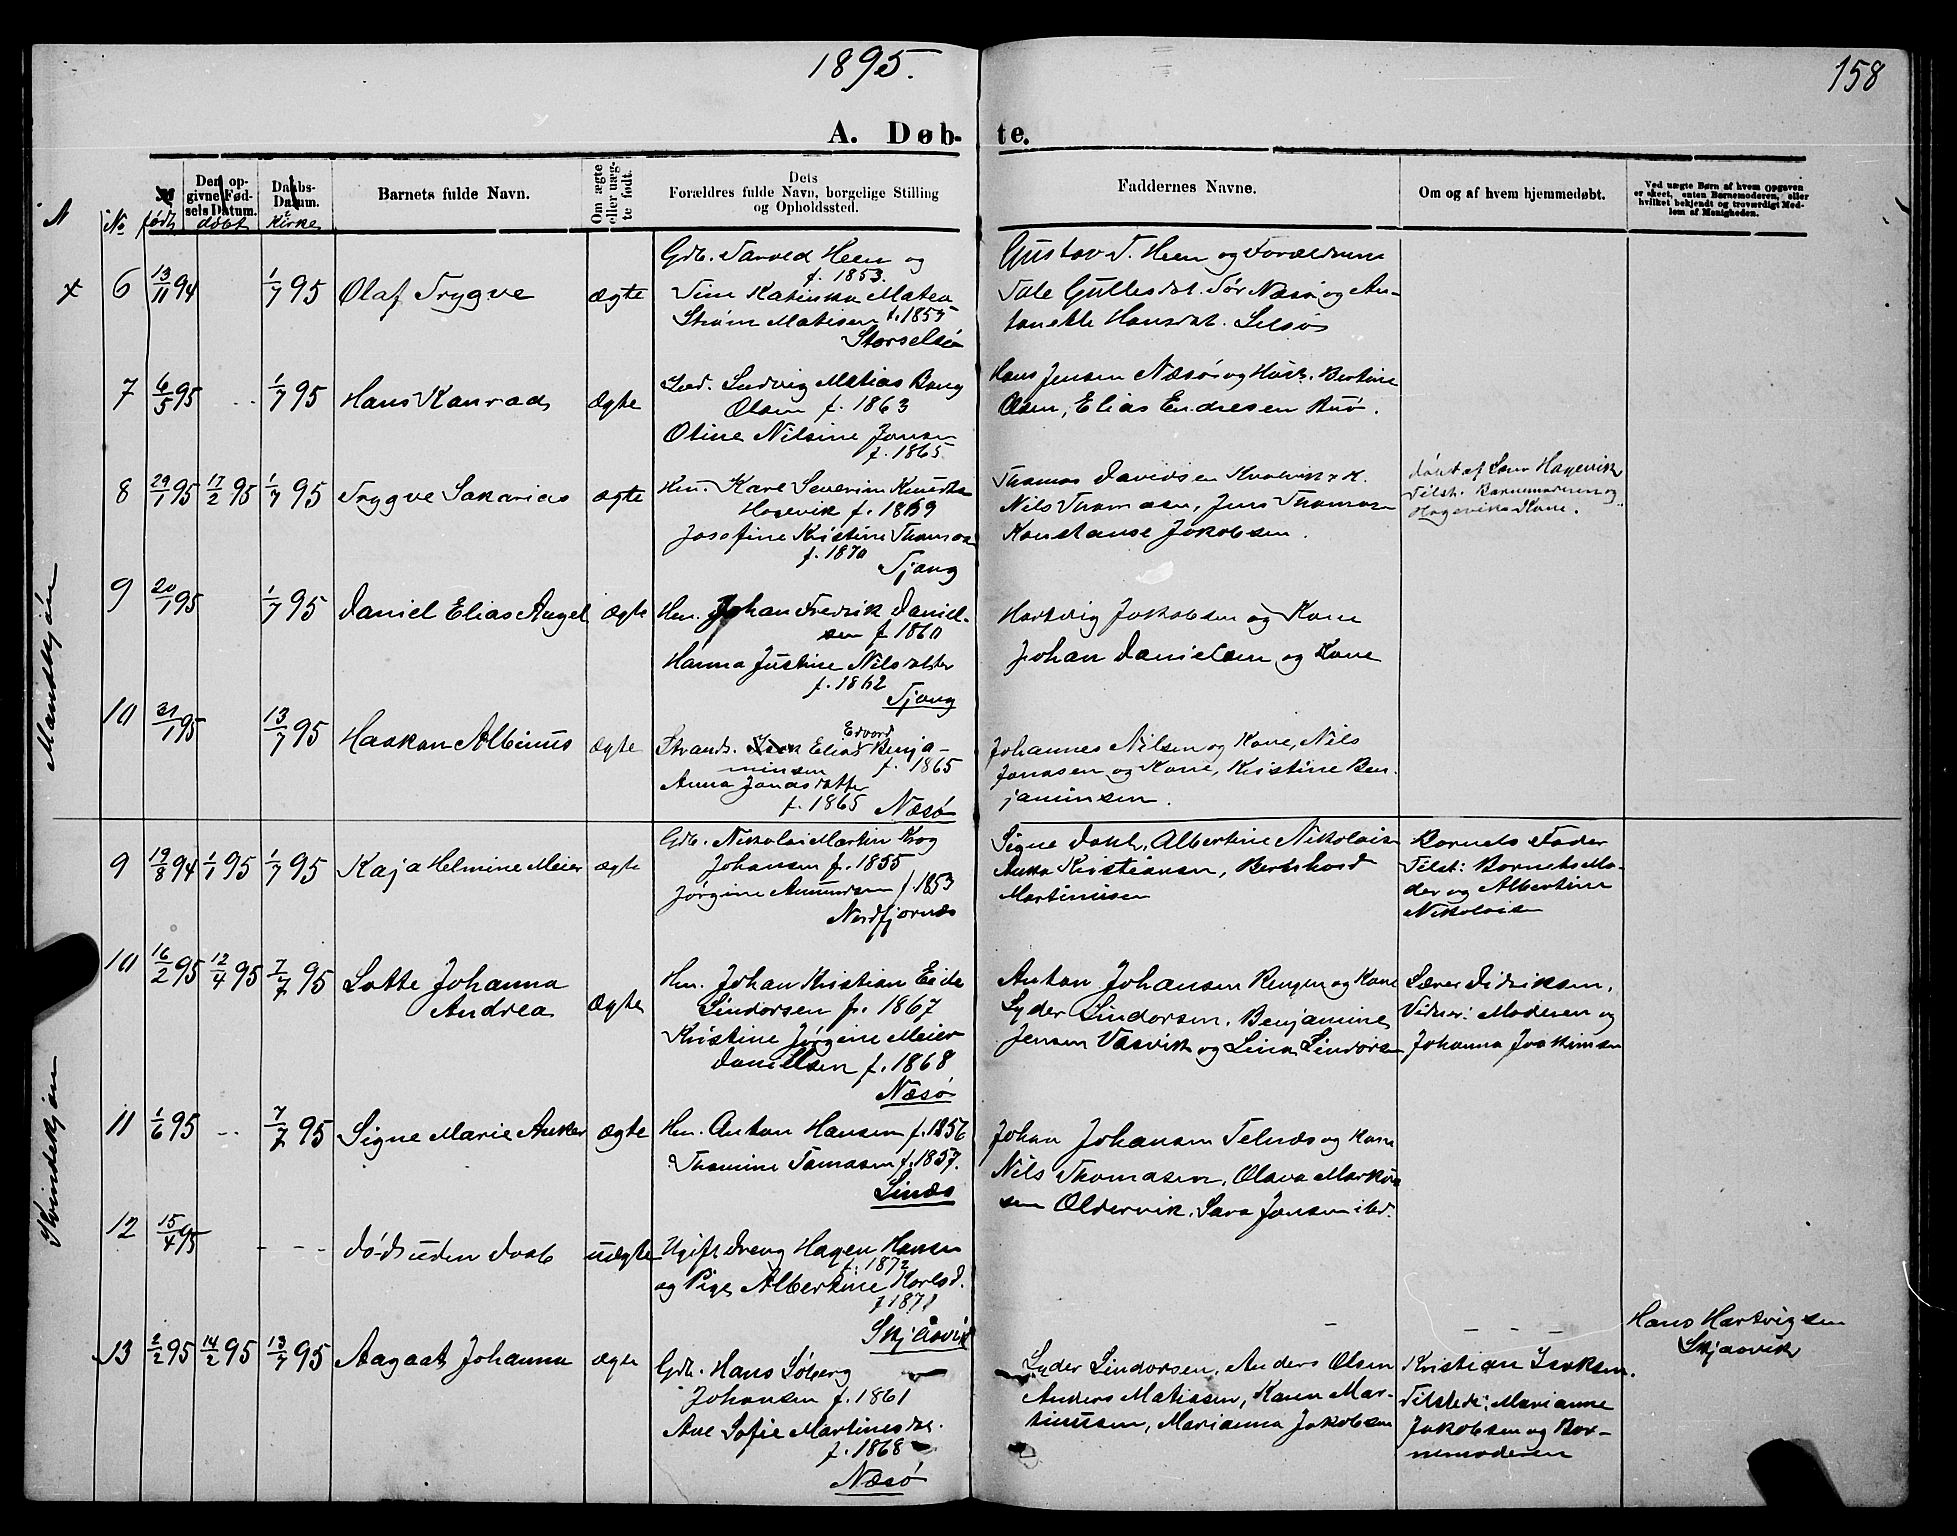 1895.
158
A. Døb-
te.
No
født
Den op-
givne Fød-
sels Datum.
døbt
Daabs-
Datum.
i Kirke
Barnets fulde Navn.
Om ægte
eller uæg-
te født.
Dets
Forældres fulde Navn, borgelige Stilling
og Opholdssted.
Faddernes Navne.
Om og af hvem hjemmedøbt.
Ved uægte Børn af hvem Opgaven
er skeet, enten Børnemoderen, eller
hvilket bekjendt og troværdigt Med-
lem af Menigheden.
N
Mandkjøn
x 6 13/11 94 1/7 95 Olaf Trygve ægte
Gdb. Tarved Heen og
f. 1853
Katinka Matea
Strøm Matisen f. 1855
Storselsø
Gustav T. Heen og Forældrene
Tale Gullesdat. Tør Næsø og An-
tonette Hansdat. Selsøs
7 6/5 95 -- 1/7 95 Hans Konrad ægte
Ludvig Matias Bang
Olsen f. 1863
Otine Nilsine Jonsen
f. 1865
Hans Jensen Næsø og Hust. Bertine
Olsen, Elias Endresen Buø.
8 29/1 95 17/2 95 1/7 95 Trygve Sakarias ægte
Hm. Kare Severin Knudsen
Hagevik f. 1869
Josefine Kristine Thomasen
f. 1870
Tjong
Thomas Davidsen
Nils Thomasen, Jens Thomasen
Konstanse Jakobsen.
døbt af Hagevik
Tilst. Barnemoderen og
Hageviks Kone.
9 20/1 95 1/7 95 Daniel Elias Angel ægte
Hm. Johan Fredrik Daniel-
sen f. 1860
Hanna Justine Nilsdatter
f. 1862
Tjong
Hartvig Jakobsen og Kone
Johan Danielsen og Kone
10 31/1 95 13/7 95 Haakon Albinus ægte
Edvard
Strands. Elias Benja-
minsen f. 1865
Anna Jonasdatter
f. 1865 Næsø
Johannes Nilsen og Kone, Nils
Jonassen og Kone, Kristine Ben-
jaminsen.
Kvindekjøn
9 19/8 94 1/1 95 1/7 95 Kaja Helmine Meier ægte
Gdb. Nikolai Martin Krog
Johansen f. 1855
Jørgine Amundsen f. 1853
Nordfjornæs
Signe Dahl, Albertine Nikolaisen
Anna Kristiansen, Bernhard
Martinusen
Barnets Fader
Tilst: Barnets Mo-
der og Albertine
Nikolaisen
10 16/2 95 12/4 95 7/7 95 Lotte Johanna
Andrea ægte
Hm. Johan Kristian Eide
Lindorsen f. 1867
Kristine Jørgine Meier
Daniilsen f. 1868
Næsø
Anton Johansen Rengen og Kone
Lyder Lindorsen. Benjamine
Jensen Vasvik og Lina Lindorsen
Lærer Didriksen,
Vidner: Moderen og
Johanna Joakimsen
11 1/6 95 -- 7/7 95 Signe Marie Anker ægte
Hm. Anton Hansen f. 1856
Thomine Tomasen f. 1857.
Linæs
Johan Johansen Telnæs og Kone
Nils Thomasen, Olava Markus-
sen Oldervik. Sara Jonsen ibd.
12 15/4 95 - - - død uden Daab uægte
Ugift Dreng Hagen Hansen
f. 1872
og Pige Albertine Karlsd.
f 1871
Skjåsvik
-
- - -
Hans Hartvigsen
Skjaasvik
13 2/2 95 14/2 95 13/7 95 Aagaat Johanna ægte
Gdb. Hans Søberg
Johansen f. 1861
Ane Sofie Martinesdat.
f. 1868
Næsø
Lyder Lindorsen, Anders Olsen
Anders Matissen, Karen Mar-
tinussen, Marianna Jakobsen
Kristian Isaksen.
Tilstede: Marianne
Jakobsen og Bar-
nemoderen